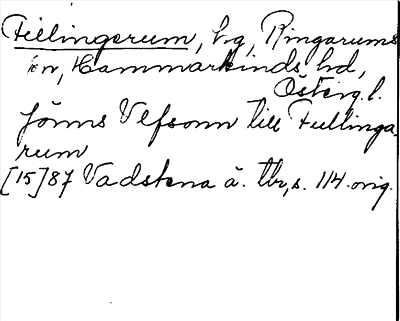 Fillingerum, hg, Ringarums
sn, Hammarkinds hd,
Österg. l.
Jöns Ulfsonn till Fullinga-
rum
[15]87 Vadstena ä. tbr, s. 114. orig.